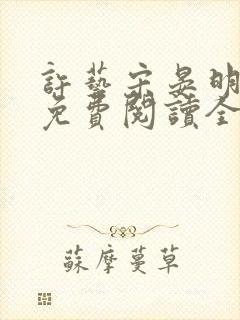 許藝宋晏明
免費閱讀全
蘇摩蔓草